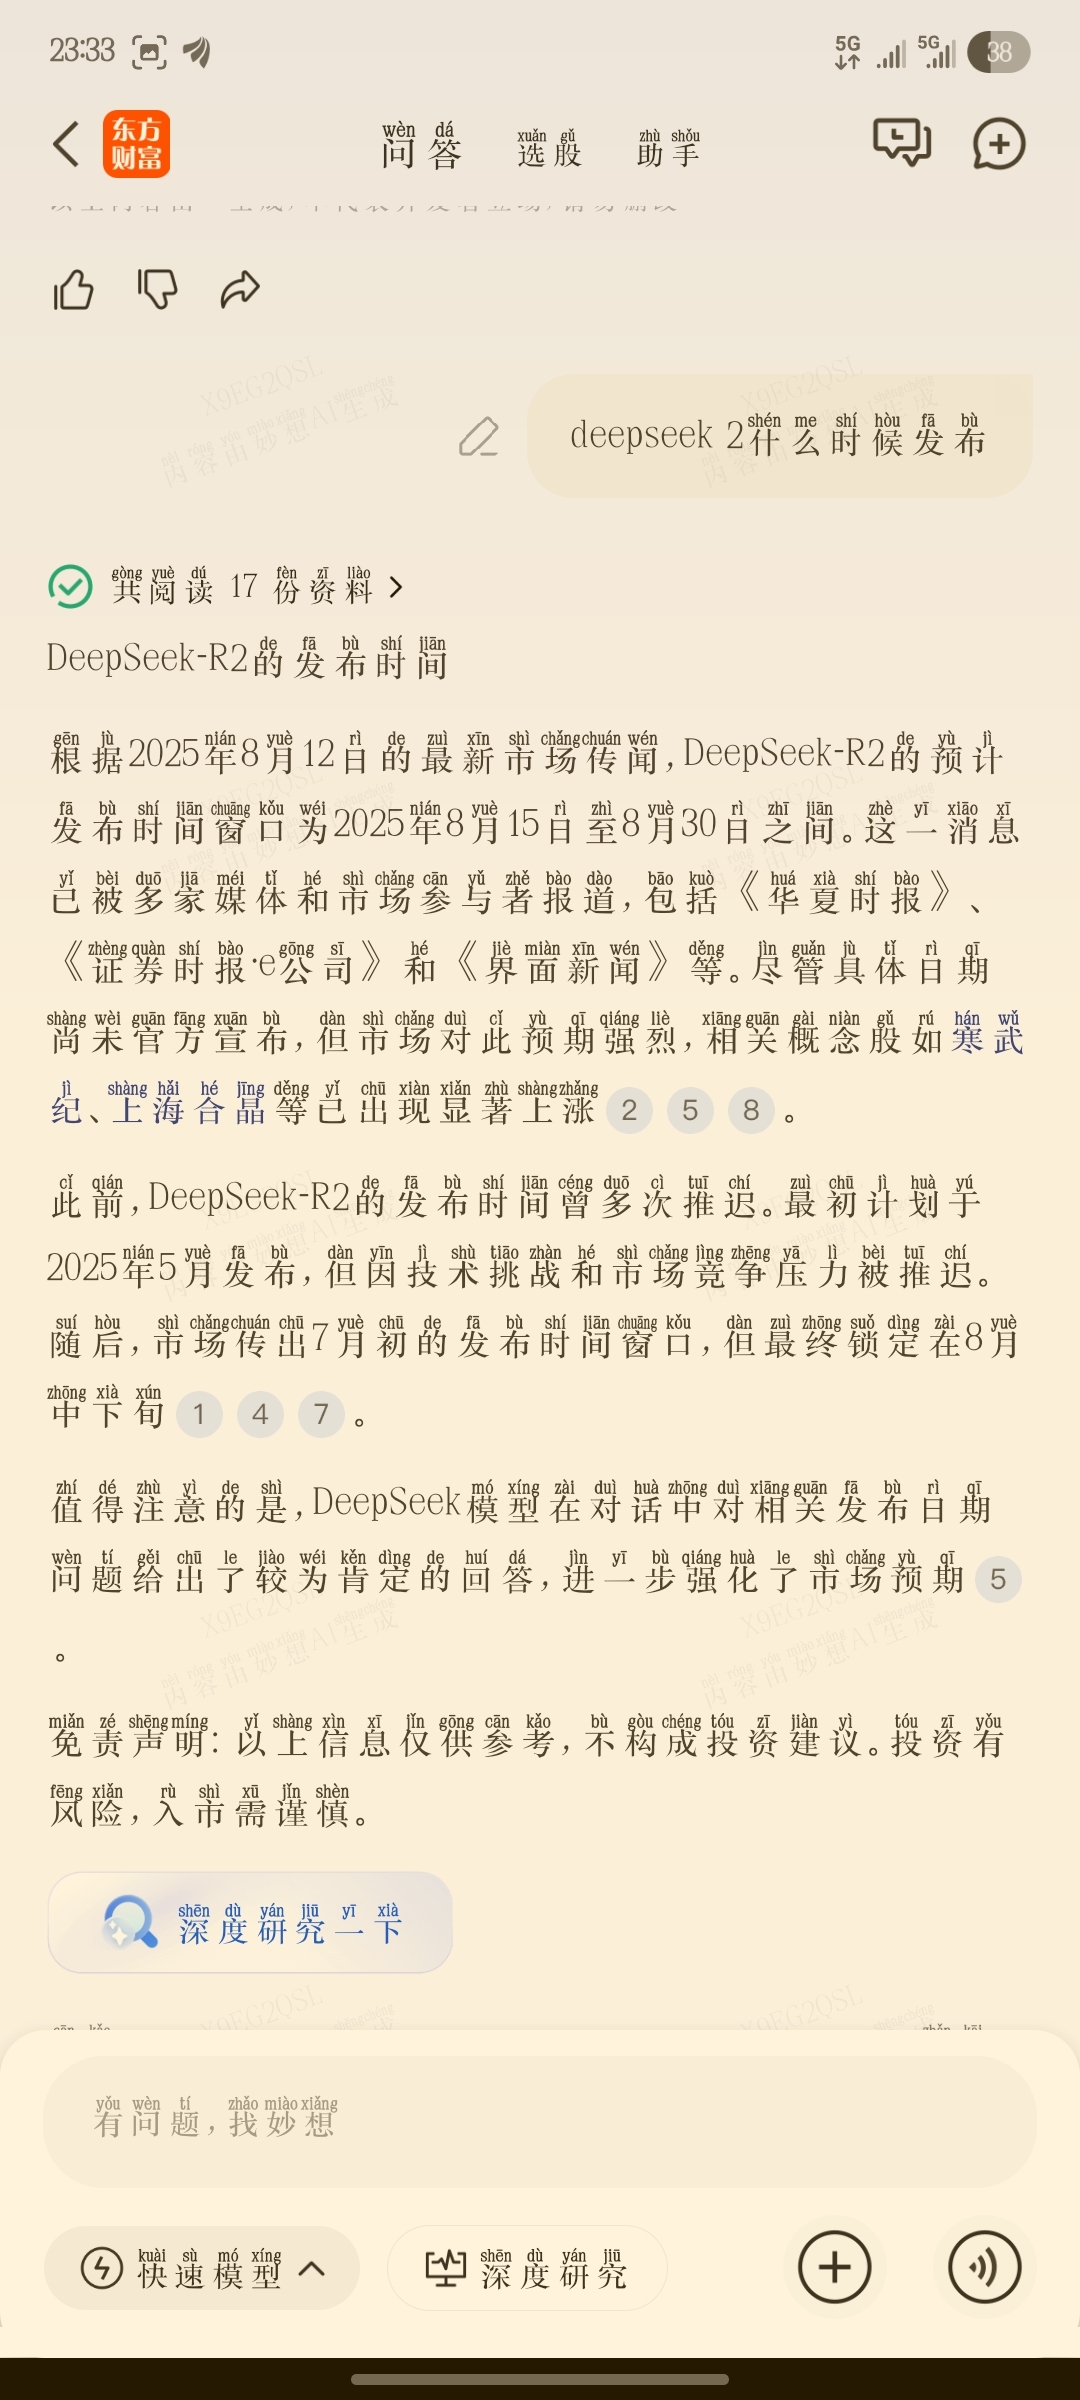 23:33 5G 5G 38
东方财富 问答 选股 助手
deepseek 2什么时候发布
共阅读 17 份资料
DeepSeek-R2的发布时间
根据2025年8月12日的最新市场传闻,DeepSeek-R2的预计
发布时间窗口为2025年8月15日至8月30日之间。这一消息
已被多家媒体和市场参与者报道,包括《华夏时报》、
《证券时报·e公司》和《界面新闻》等。尽管具体日期
尚未官方宣布,但市场对此预期强烈,相关概念股如寒武
纪、上海合晶等已出现显著上涨 2 5 8 。
此前,DeepSeek-R2的发布时间曾多次推迟。最初计划于
2025年5月发布,但因技术挑战和市场竞争压力被推迟。
随后,市场传出7月初的发布时间窗口,但最终锁定在8月
中下旬 1 4 7 。
值得注意的是,DeepSeek模型在对话中对相关发布日期
问题给出了较为肯定的回答,进一步强化了市场预期 5
。
免责声明：以上信息仅供参考,不构成投资建议。投资有
风险,入市需谨慎。
深度研究一下
有问题,找妙想
快速模型 深度研究
X9EG2QSL
内容由妙想AI生成